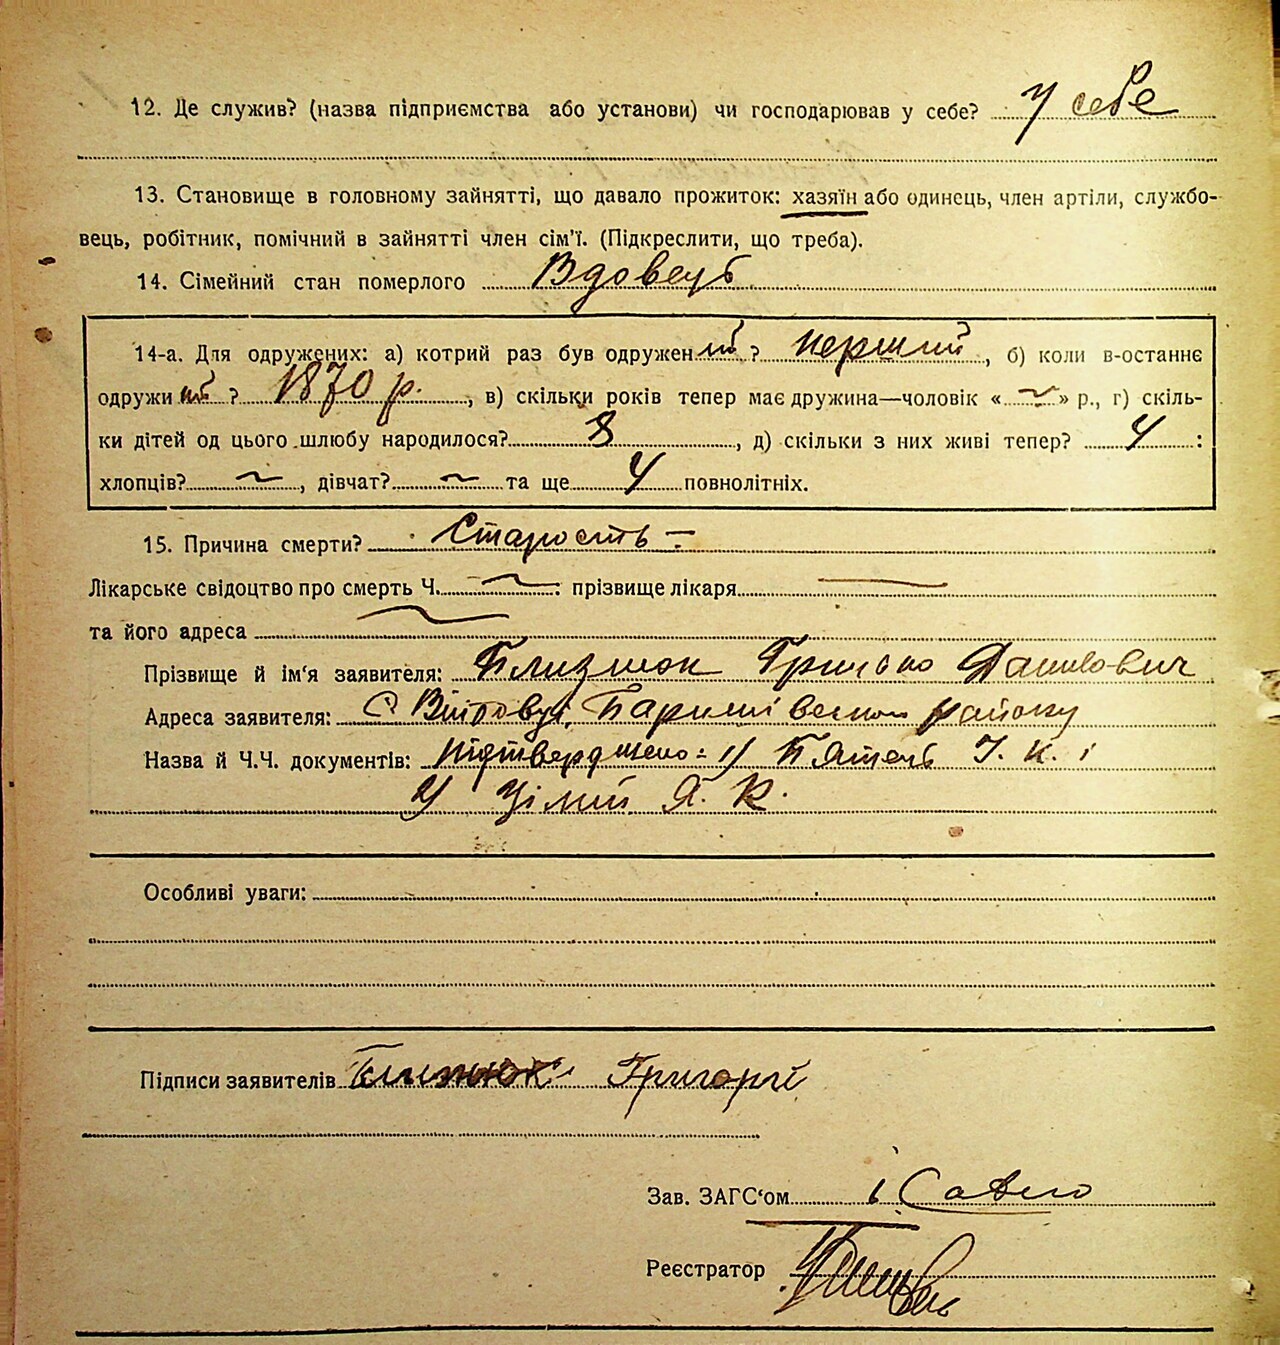 12. Де служив? (назва підприємства або установи) чи господарював у себе? У себе
13. Становище в головному зайнятті, що давало прожиток: хазяїн або одинець, член артіли, службо-
вець, робітник, помічний в зайнятті член сім'ї. (Підкреслити, що треба).
14. Сімейний стан померлого Вдовець
14-а. Для одружених: а) котрий раз був одружений? перший, б) коли в-останнє
одружи ? 1870 р., в) скільки років тепер має дружина—чоловік «~» р., г) скіль-
ки дітей од цього шлюбу народилося? 8, д) скільки з них живі тепер? 4:
хлопців? ~, дівчат? ~ та ще 4 повнолітніх.
15. Причина смерти? Старость
Лікарське свідоцтво про смерть Ч. ~: прізвище лікаря —
та його адреса ~
Прізвище й ім'я заявителя: Близнюк Грицько Данилович
Адреса заявителя: С Войтовці, Баришівського району
Назва й Ч.Ч. документів: підтверджено: 1) І. К. і
2) Я. К.
Особливі уваги:
Підписи заявителів Близнюк Григорій
Зав. ЗАГС'ом
Реєстратор